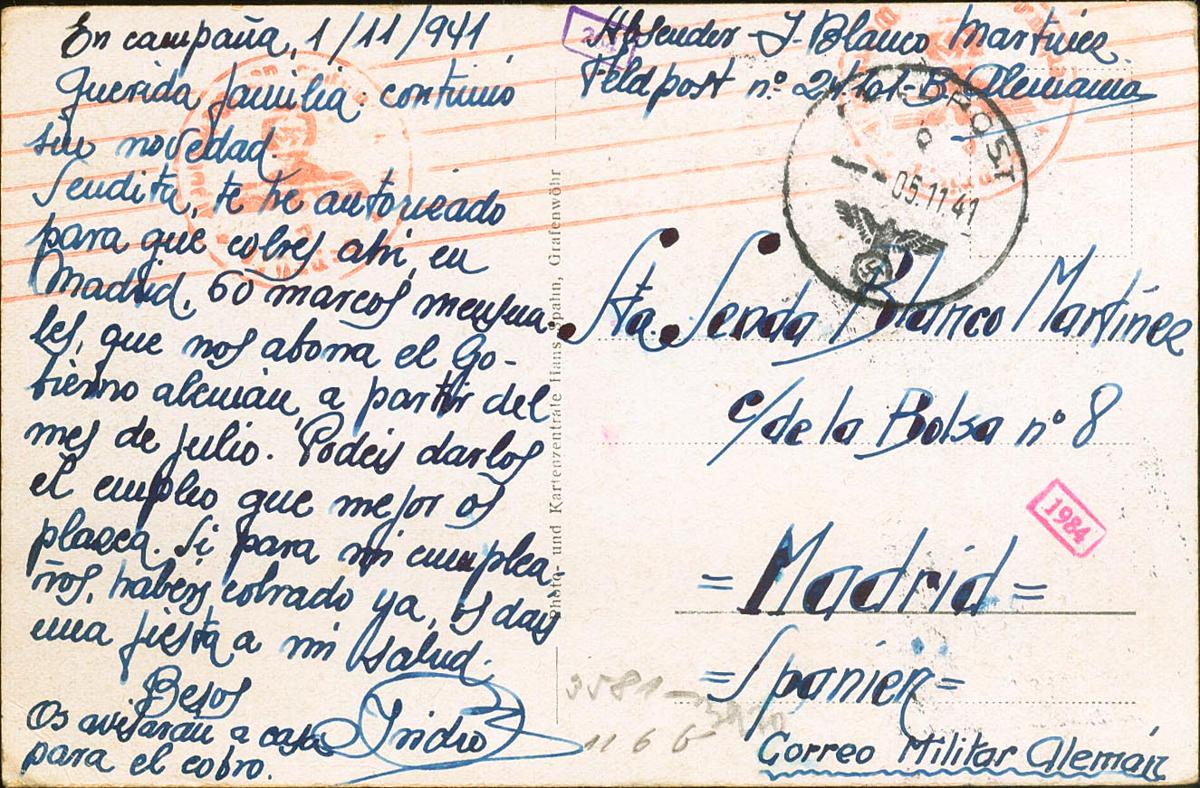 En campaña, 1/11/941
Querida familia: continuó
sin novedad.
Sendita, te he autorizado
para que cobres ahi, en
Madrid, 60 marcos mensua-
les, que nos abona el Go-
bierno alemán, a partir del
mes de julio. Podeis darlos
el empleo que mejor os
plazca. Si para mi cumplea-
ños, habeis cobrado ya, os dais
una fiesta a mi salud.
Besos
Isidro
Os avisarán a casa
para el cobro.
Photo- und Kartenzentrale Hans Spahn, Grafenwöhr
Absender - I. Blanco Martínez
Feldpost nº 24101-B Alemania
FELDPOST
b
--05.11.41
Sta. Senda Blanco Martínez
c/ de la Bolsa nº 8
1984
=Madrid=
=Spanien=
3581-
11 6 6
Correo Militar Alemán